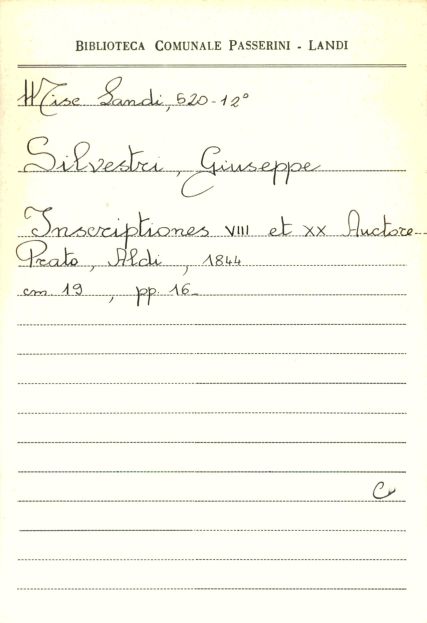 BIBLIOTECA COMUNALE PASSERINI - LANDI
Misc Landi, 520-12°
Silvestri, Giuseppe
Inscriptiones VIII et XX Auctore-
Prato, Aldi, 1844
cm 19, pp. 16_